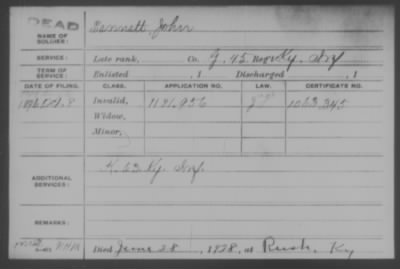 DEAD
NAME OF SOLDIER: Bannett, John
SERVICE: Late rank, Co. G, 45 Reg't Ky. Inf
TERM OF SERVICE: Enlisted , 1 Discharged , 1
DATE OF FILING. CLASS. APPLICATION NO. LAW. CERTIFICATE NO.
1896 Oct. 8 Invalid, 1181,956 1063,345
Widow,
Minor,
ADDITIONAL SERVICES: K. 53 Ky. Inf.
REMARKS:
Died June 28, 1928, at Rush, Ky